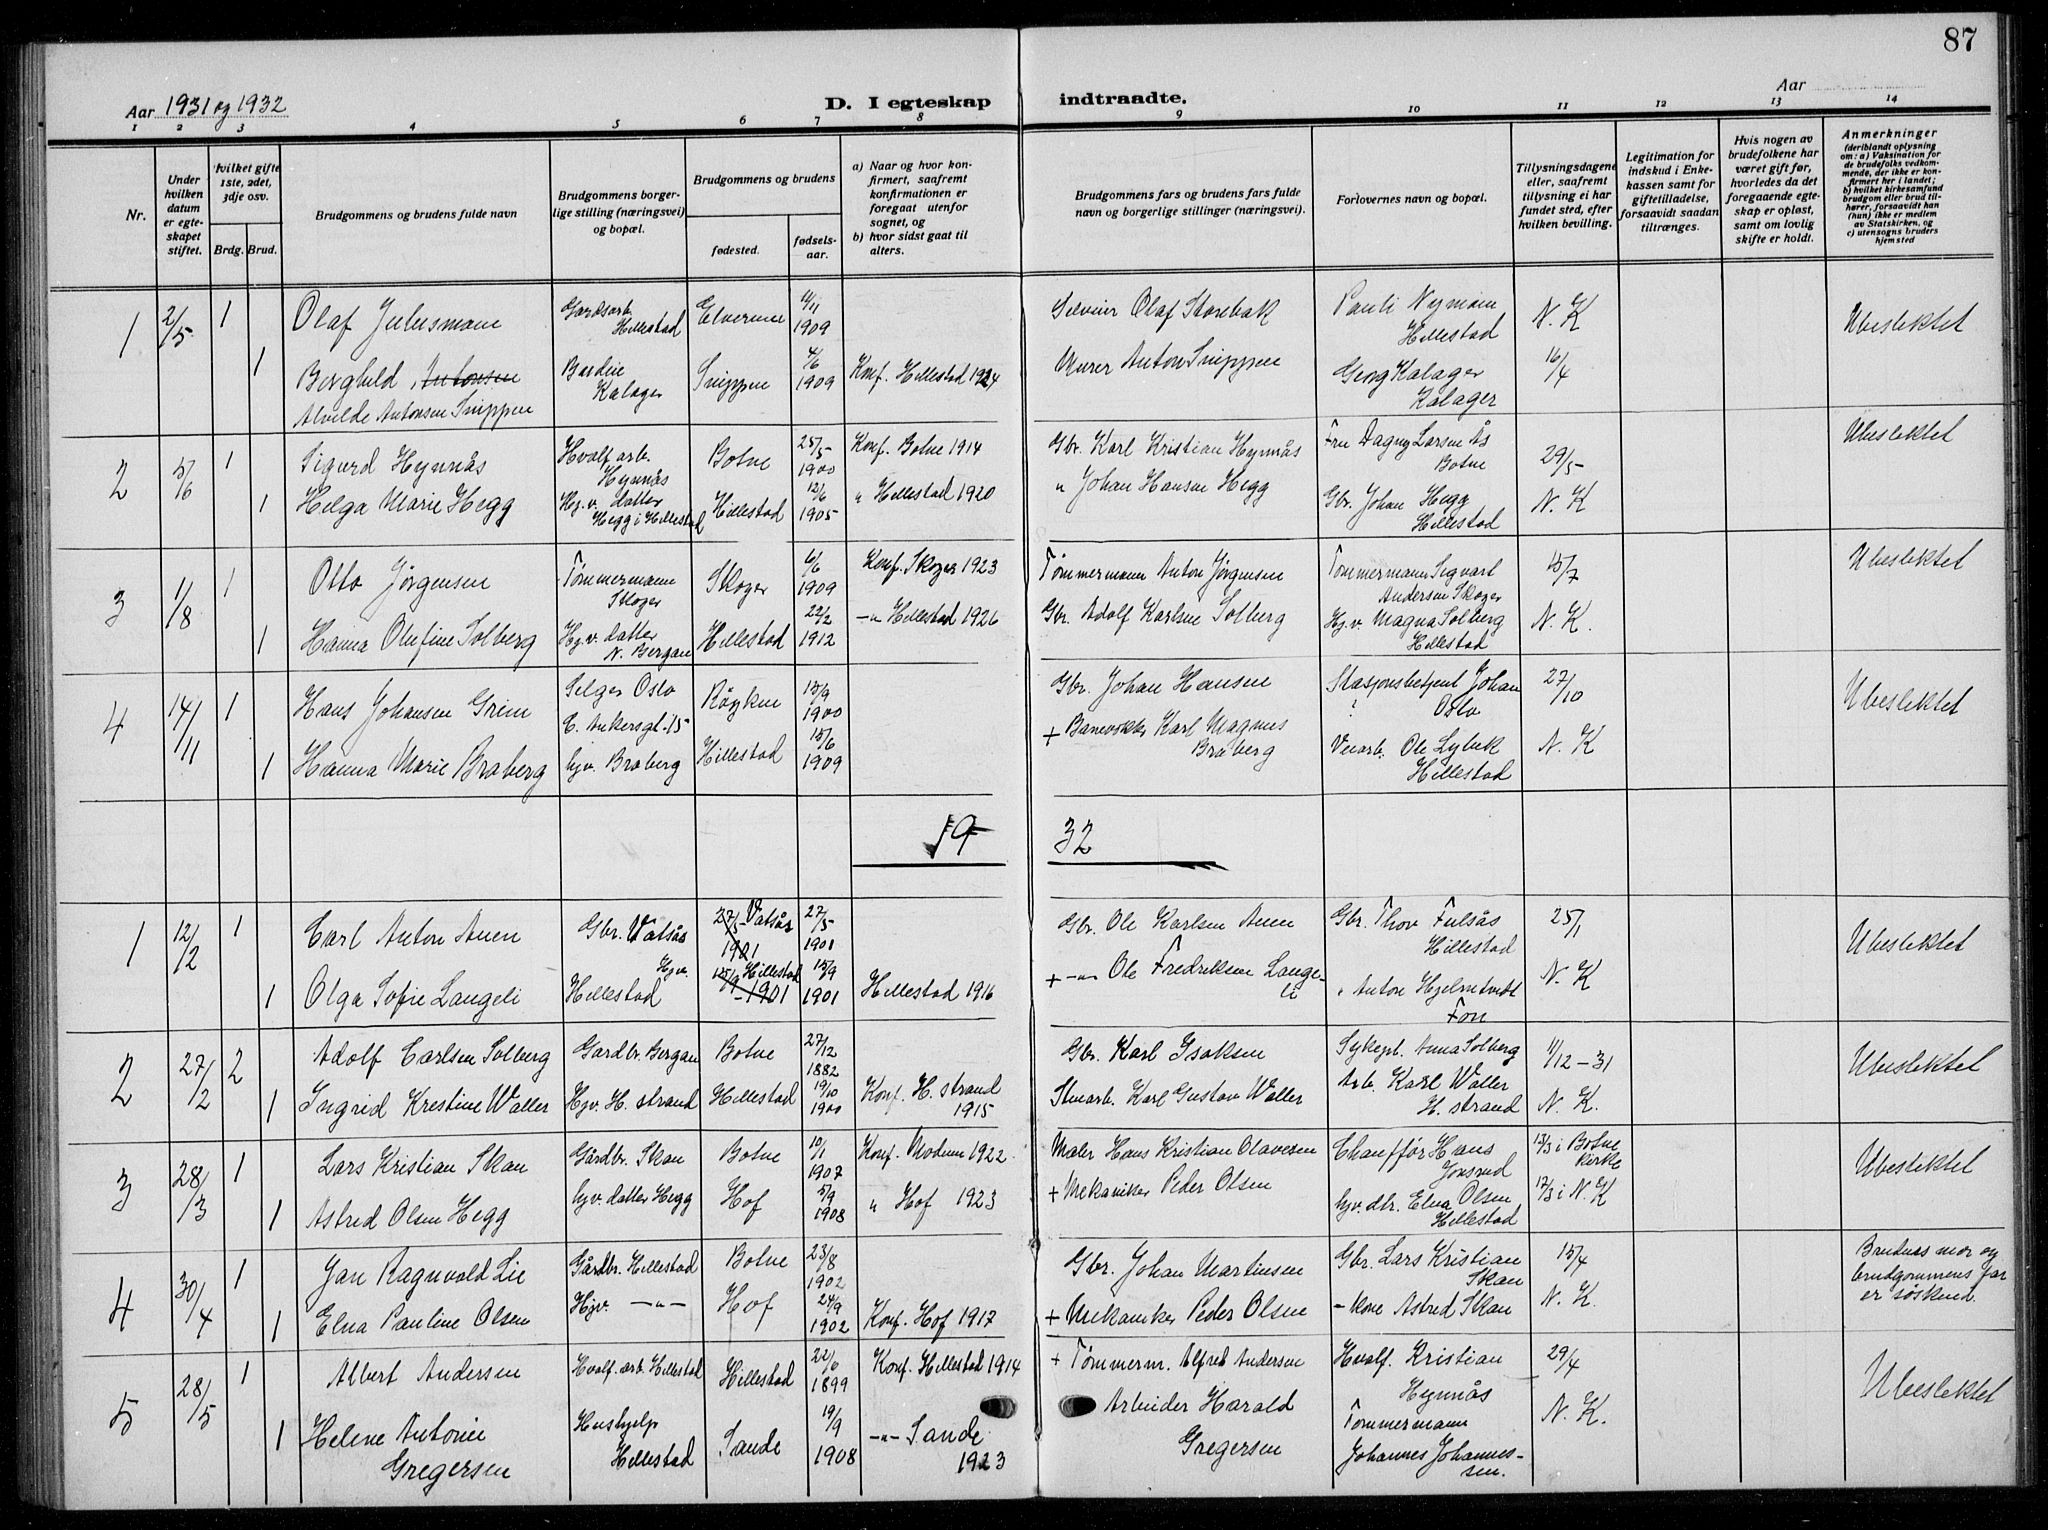 87
Aar 1931 og 1932
D. I egteskap
indtraadte.
Aar
1 2 3 4 5 6 7 8
9 10 11 12 13 14
Nr.
Under hvilken datum er egteskapet stiftet.
Hvilket gifte 1ste, 2det, 3dje osv.
Brdg. Brud.
Brudgommens og brudens fulde navn
Brudgommens borgerlige stilling (næringsvei) og bopæl.
Brudgommens og brudens
fødested.
fødselsaar.
a) Naar og hvor konfirmert, saafremt konfirmationen er foregaat utenfor sognet, og
b) hvor sidst gaat til alters.
Brudgommens fars og brudens fars fulde navn og borgerlige stillinger (næringsvei).
Forlovernes navn og bopæl.
Tillysningsdagene eller, saafremt tillysning ei har fundet sted, efter hvilken bevilling.
Legitimation for indskud i Enkekassen samt for giftetilladelse, forsaavidt saadan tiltrænges.
Hvis nogen av brudefolkene har været gift før, hvorledes da det foregaaende egteskap er opløst, samt om lovlig skifte er holdt.
Anmerkninger
(deriblandt oplysning om: a) Vaksination for de brudefolks vedkommende, der ikke er konfirmert her i landet; b) hvilket kirkesamfund brudgom eller brud tilhører, forsaavidt han (hun) ikke er medlem av Statskirken, og c) utensogns bruders hjemsted
1 2/5 1 Olaf Juliusmoen Gardsarb. Hillestad Elverum 11/11 1909
Olaf Storebak Pauli Nymoen Hillestad N. K Ubeslektet
1 Borghild Antonsen Budeie Kalager Snippen 4/6 1909 Konf. Hillestad 1924
Alvilde Antonsen Snippen
Murer Anton Snippen Georg Kalager Kalager 16/4
2 5/6 1 Sigurd Hynnås Hvalf arb. Hynnås Botne 25/5 1900 Konf. Botne 1914
Gbr. Karl Kristian Hynnås Fru Dagny Larsen Ås Botne 29/5 Ubeslektet
1 Helga Marie Hegg Hj.v. datter Hegg i Hillestad Hillestad 12/6 1905 " Hillestad 1920
" Johan Hansen Hegg Gbr. Johan Hegg Hillestad N. K
3 1/8 1 Otto Jörgensen Tømmermann Skoger Skoger 6/6 1909 Konf. Skoger 1923
Tømmermann Anton Jørgensen Tømmermann Sigvart Andersen Skoger 15/7 Ubeslektet
1 Hanna Olufine Solberg Hj.v. datter N. Bergan Hillestad 22/2 1912 -"- Hillestad 1926
Gbr. Adolf Karlsen Solberg Hj.v. Magna Solberg Hillestad N. K.
4 14/11 1 Hans Johansen Grim Selger Oslo C. Ankersgt. 15 Röyken 15/9 1900
Gbr. Johan Hansen Stasjonsbetjent Johan ? Oslo 27/10 Ubeslektet
1 Hanna Marie Braberg hjv. Braberg Hillestad 15/6 1909
+ Banevokter Karl Magnus Braberg Veiarb. Ole Lybek Hillestad N. K
19
32
1 12/2 1 Carl Anton Auen Gbr. Vatsås 27/5 1901 Vatsås 27/5 1901
Gbr. Ole Karlsen Auen Gbr. Thov Fulsås Hillestad 25/1 Ubeslektet
1 Olga Sofie Langeli Hjv. Hillestad 15/9 1901 Hillestad 15/9 1901 Hillestad 1916
+ -"- Ole Fredriksen Langeli " Anton Hjelmtvedt Fon N. K
2 27/2 2 Adolf Carlsen Solberg Gardbr. Bergan Botne 27/12 1882
Gbr. Karl Isaksen Sykepl. Anna Solberg 11/12-31 Ubeslektet
1 Ingrid Krestine Waller Hjv. H. strand Hillestad 19/10 1900 Konf. H. strand 1915
Karl Gustav Waller Arb. Karl Waller H. strand N. K.
3 28/3 1 Lars Kristian Skan Gårdbr. Skan Botne 10/1 1907 Konf. Modum 1922
Maler Hans Kristian Olavesen Chauffør Hans Jonsrud 13/3 i Botne kirke Ubeslektet
1 Astrid Olsen Hegg hjv. datter Hegg Hof 5/9 1908 " Hof 1923
+ Mekaniker Peder Olsen hjv. dtr. Elna Olsen Hillestad 17/3 i N. K
4 30/4 1 Jan Ragnvald Lie Gårdbr. Hillestad Botne 23/8 1902
Gbr. Johan Martinsen Gbr. Lars Kristian Skan 15/4 Brudens mor og brudgommens far er søskend.
1 Elna Pauline Olsen Hjv. -"- Hof 24/9 1902 Konf. Hof 1917
+ Mekaniker Peder Olsen - kone Astrid Skan N. K.
5 28/5 1 Albert Andersen Hvalf. arb. Hillestad Hillestad 22/6 1899 Konf. Hillestad 1914
+ Tømmerm. Alfred Andersen Hvalf. Kristian Hynnås 29/4 Ubeslektet
1 Helene Antonie Gregersen Hushjelp Hillestad Sande 19/9 1908 -"- Sande 1923
Arbeider Harald Gregersen Tømmermann Johannes Johannessen. N. K.